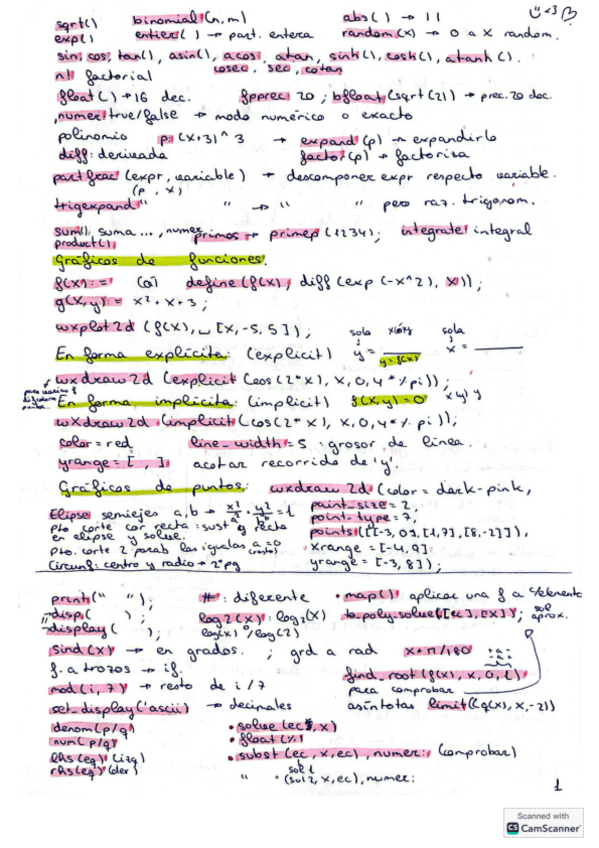 sqrt() binomial(n,m) abs() → | | <3 B
exp() entier() → part. entera random(x) → 0 a x random.
sin, cos, tan(), asin(), acos, atan, sinh(), cosh(), atanh().
cosec, sec, cotan
n! factorial
float() → 16 dec. fpprec: 20 ; bfloat(sqrt(2)) → prec. 20 dec.
,numer: true/false → modo numérico o exacto
polinomio p: (x+3)^3 → expand(p) → expandirlo
diff: derivada factor(p) → factoriza
partfrac (expr, variable) → descomponer expr respecto variable.
(p , x)
trigexpand " " → " " pero raz. trigonom.
sum(), suma ..., numer primos → primep (1234); integrate integral
product()
Gráficos de funciones.
f(x) := (o) define (f(x), diff (exp (-x^2), x));
g(x,y) = x²+x+3;
wxplot2d (f(x), [x,-5,5]);
solo solo
En forma explícita: (explicit) y = ___ x = ___
y=f(x)
wxdraw2d (explicit (cos(2*x), x, 0, 4*%pi));
En forma implícita: (implicit) f(x,y)=0 x y y
wxdraw2d (implicit (cos(2*x), x, 0, 4*%pi));
color=red line_width=5 : grosor de línea.
yrange=[ , ] acotar recorrido de 'y'.
Gráficos de puntos: wxdraw2d (color=dark-pink,
Elipse semiejes a,b → x²/a² + y²/b² = 1 point_size=2,
pto corte con recta: sust y recta point-type=7,
en elipse y solve. points([[-3,0],[1,7],[8,-2]]),
pto. corte 2 parab las igualas a=0 xrange=[-4,9]
Circunf: centro y radio → 2ª pg yrange=[-3,8]);
print(" "); # : diferente • map() aplicar una f a c/elemento
disp( ); log2(x): log₂(x) to_poly_solve([ec],[x]); sol aprox.
display( ); log(x)/log(2)
sind(x) → en grados. ; grd a rad x*π/180
f. a trozos → if. find_root(f(x), x, 0, 1)
mod(i,7) → resto de i/7 para comprobar
set_display('ascii) → decimales asíntotas limit((g(x),x,-2))
denom(p/q) • solve(ec, x)
num(p/q) • float(%)
lhs(eq) (izq) • subst(ec, x, ec), numer: (comprobar)
rhs(eq) (der) sol 1
" • (sol2, x, ec), numer:
1
Scanned with
CS CamScanner